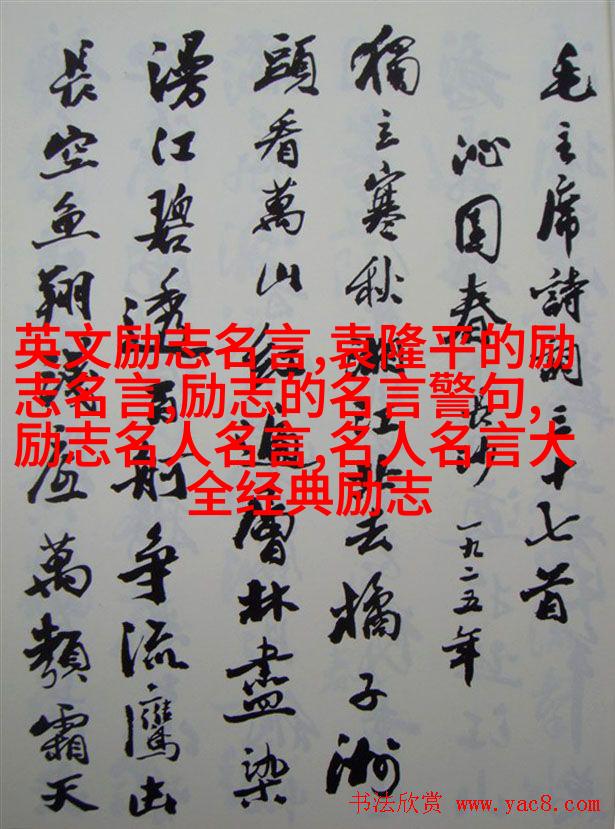 毛主席詩詞三十七首
沁園春 長沙 一九二五年
獨立寒秋湘江北去橘子洲
頭看萬山紅遍層林盡染
漫江碧透百舸爭流鷹击
長空魚翔淺底萬類霜天
英文励志名言,袁隆平的励
志名言,励志的名言警句,
励志名人名言,名人名言大
全经典励志
书法欣赏 www.yac8.com